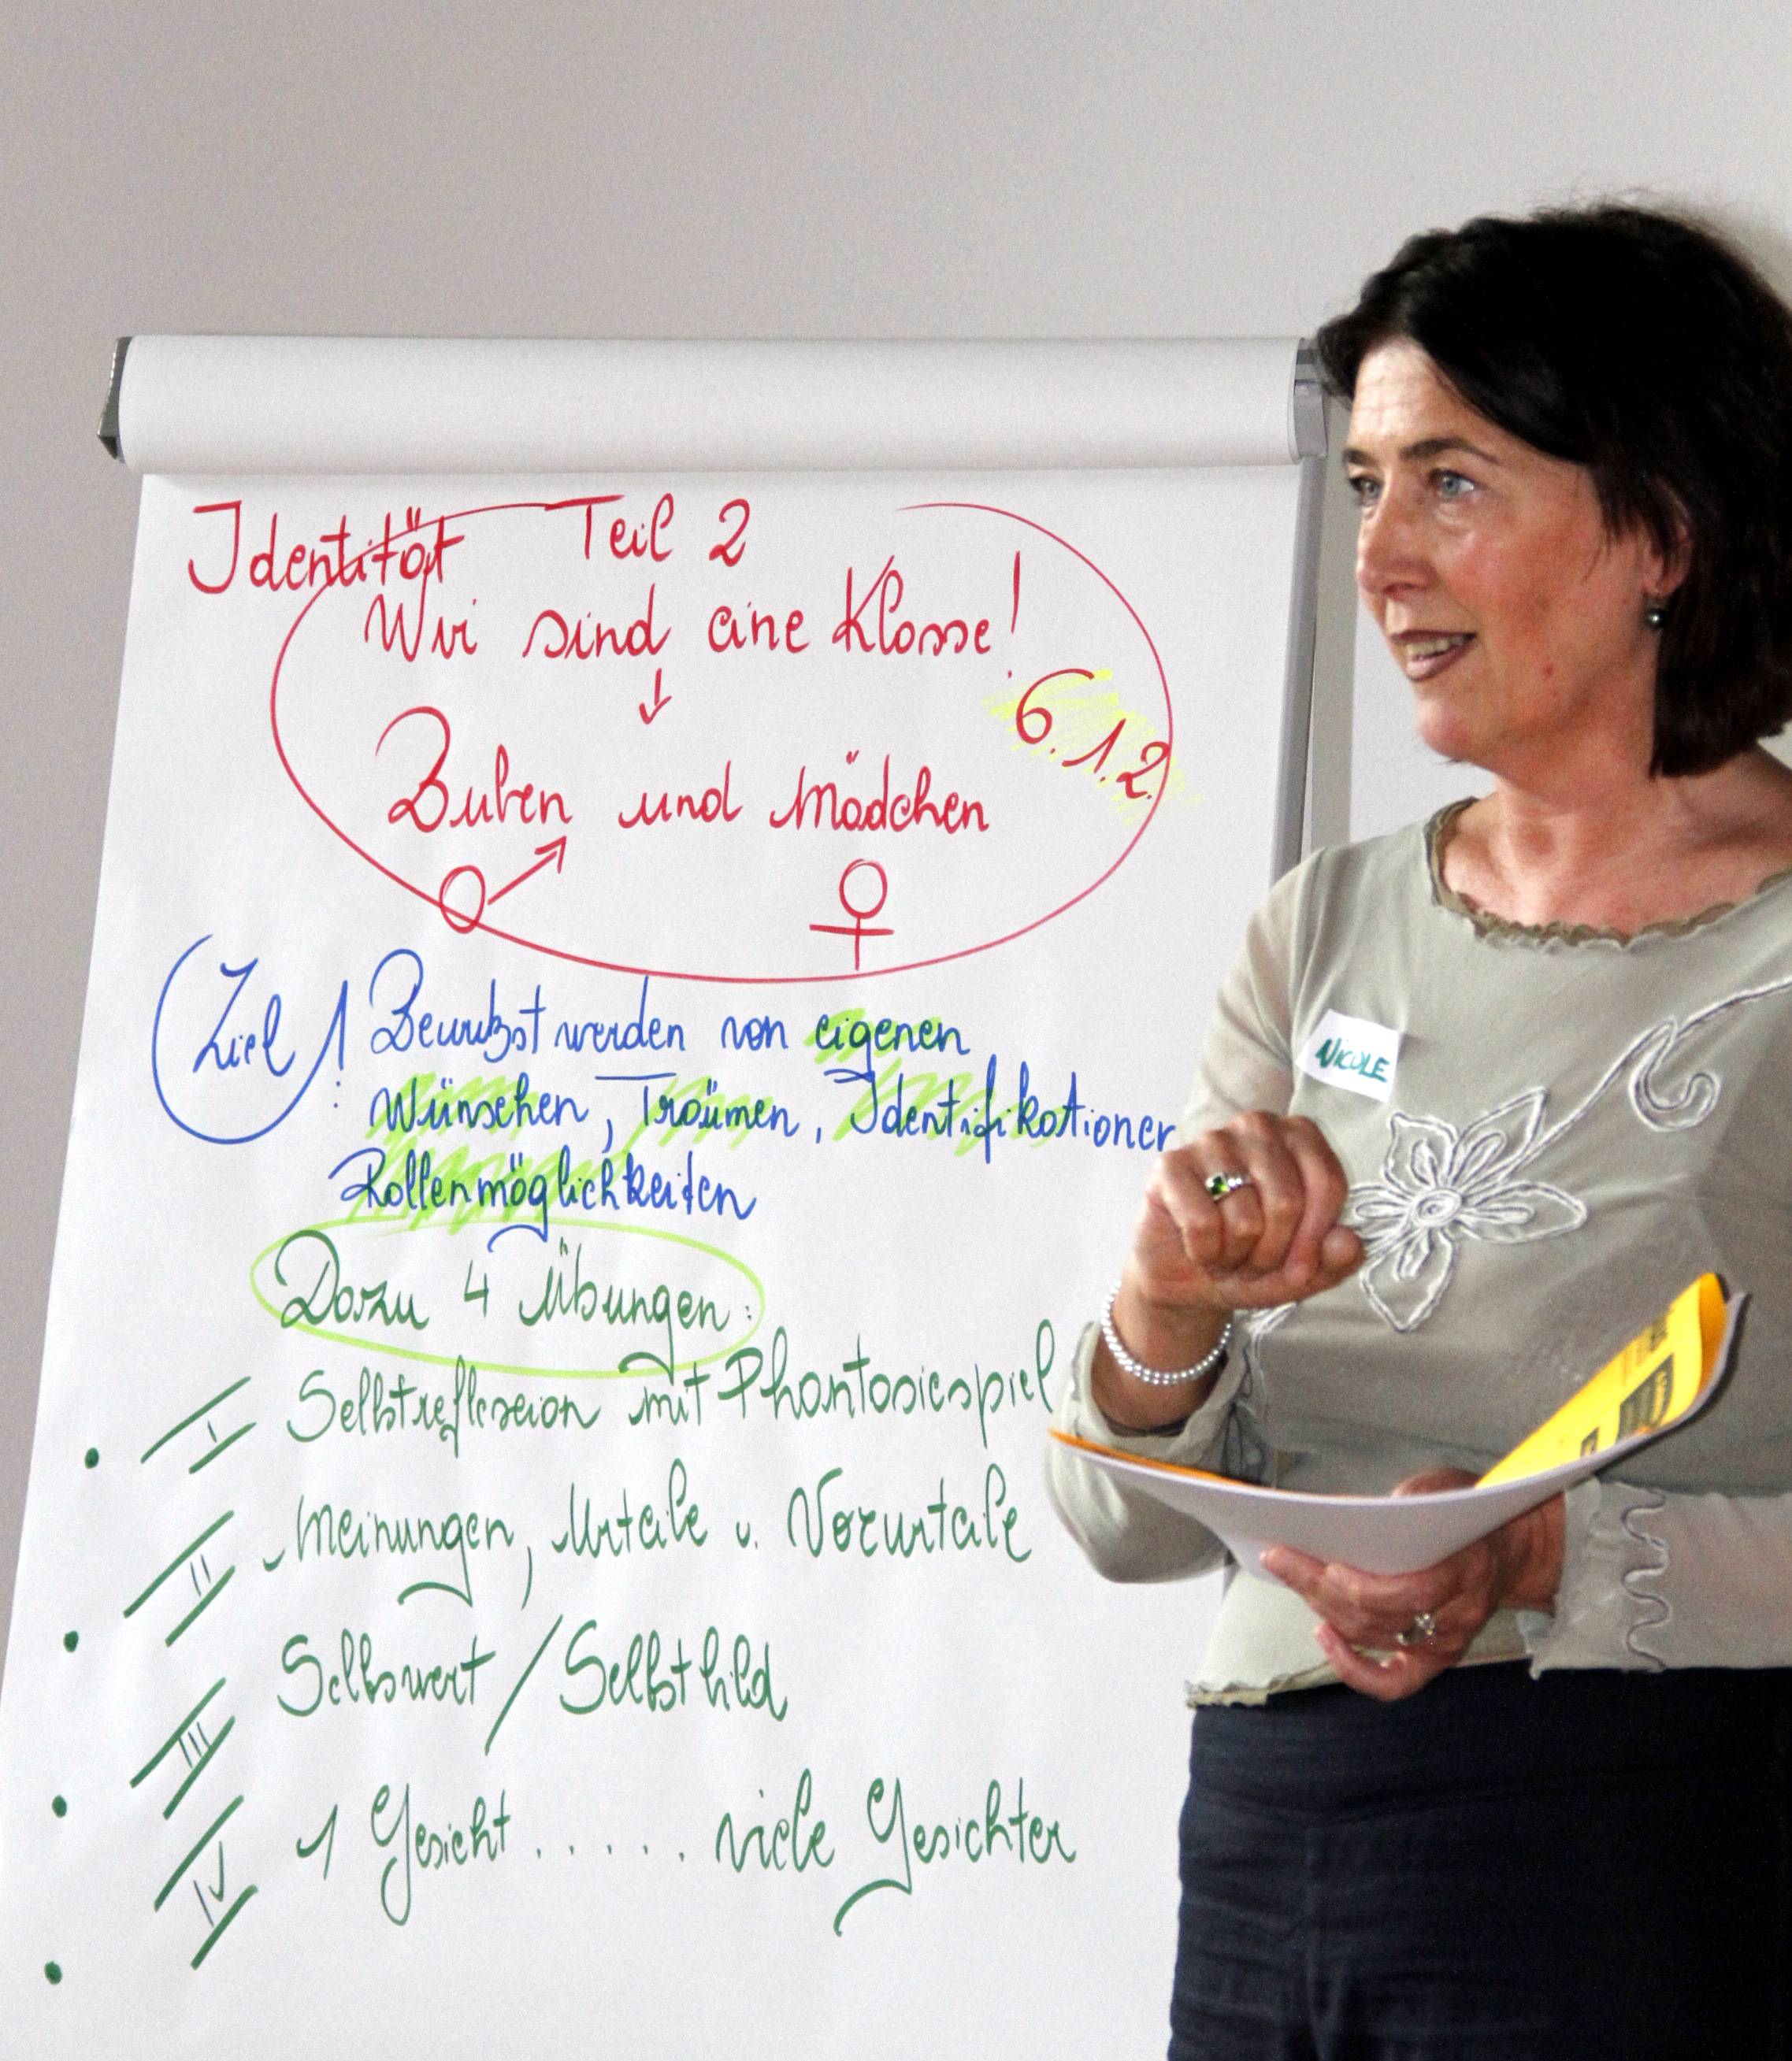 Identität Teil 2
Wir sind eine Klasse!
↓
6.1.2.
Buben und Mädchen
♂ ♀
Ziel 1: Bewußst werden von eigenen
Wünschen, Träumen, Identifikationen
Rollenmöglichkeiten
Dazu 4 Übungen:
I Selbstreflexion mit Phantasiespiel
II Meinungen, Urteile u. Vorurteile
III Selbswert / Selbstbild
IV 1 Gesicht ..... viele Gesichter
NICOLE